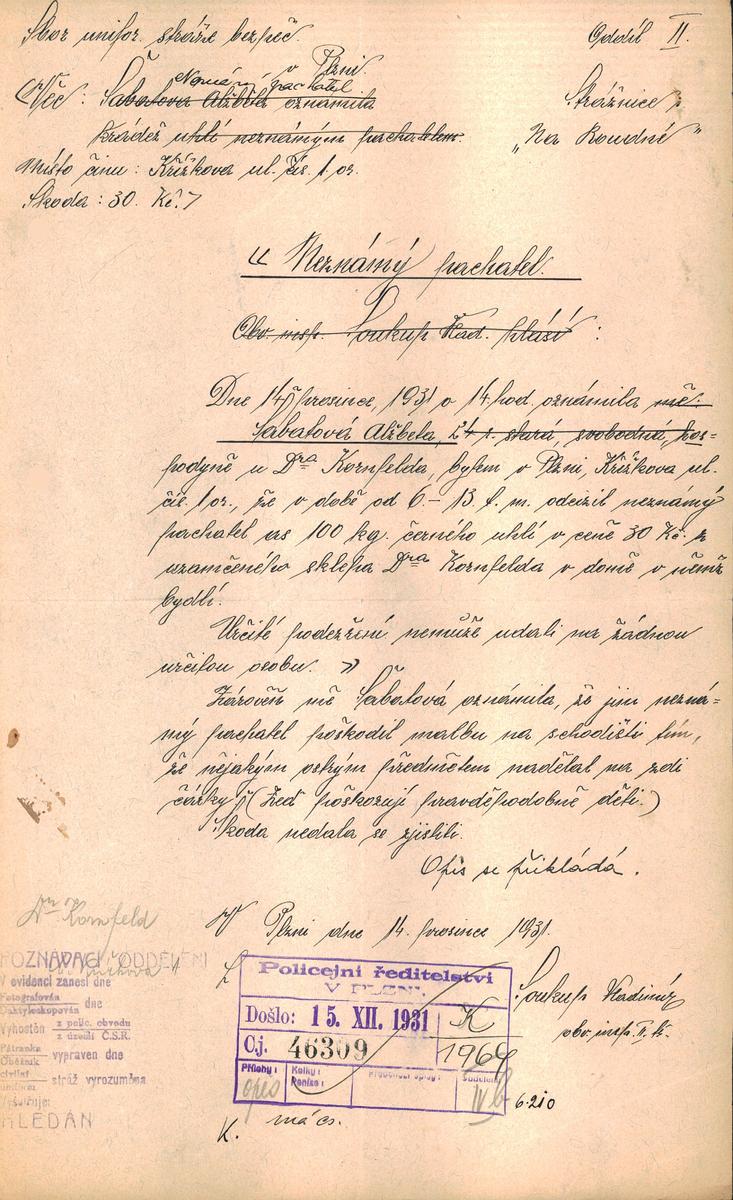 Sbor unifor. stráže bezpeč.
v Plzni.
Oddíl II.
Neznámý pachatel
Věc: Šabatova Alžběta oznámila
krádež uhlí neznámým pachatelem.
Strážnice
„Na Roudné"
Místo činu: Křížkova ul. čís. 1 or.
Škoda: 30 Kč.
Neznámý pachatel.
Obv. insp. Soukup Vlad. hlásí:
Dne 14. prosince, 1931 o 14 hod. oznámila mě:
Šabatová Alžběta, 24 r. stará, svobodná, hos=
podyně u Dra Kornfelda, bytem v Plzni, Křížkova ul.
čís. 1 or., že v době od 6.–13. t. m. odcizil neznámý
pachatel as 100 kg. černého uhlí v ceně 30 Kč. z
uzamčeného sklepa Dra Kornfelda v domě v němž
bydlí.
Určité podezření nemůže udati na žádnou
určitou osobu.
Zároveň mě Šabatová oznámila, že jim nezná=
mý pachatel poškodil malbu na schodišti tím,
že nějakým ostrým předmětem nadělal na zdi
čárky. (Zeď poškozují pravděpodobně děti.)
Škoda nedala se zjistiti.
Opis se přikládá.
V Plzni dne 14. prosince 1931.
Dr Kornfeld
POZNÁVACÍ ODDĚLENÍ
V evidenci zanesl dne
Fotografován
Daktyloskopován
dne
Vyhoštěn
z polic. obvodu
z území Č.S.R.
Pátranka
Oběžník
vypraven dne
stráž vyrozuměna
HLEDÁN
Policejní ředitelství
V PLZNI.
Došlo: 15. XII. 1931
K
Č.j. 46309
1964
Přílohy:
opis
Kolky:
Peníze:
Předchozí spisy:
Oddělení
IVb
Soukup Vladimír
obv. insp. II. tř.
6.210
K.